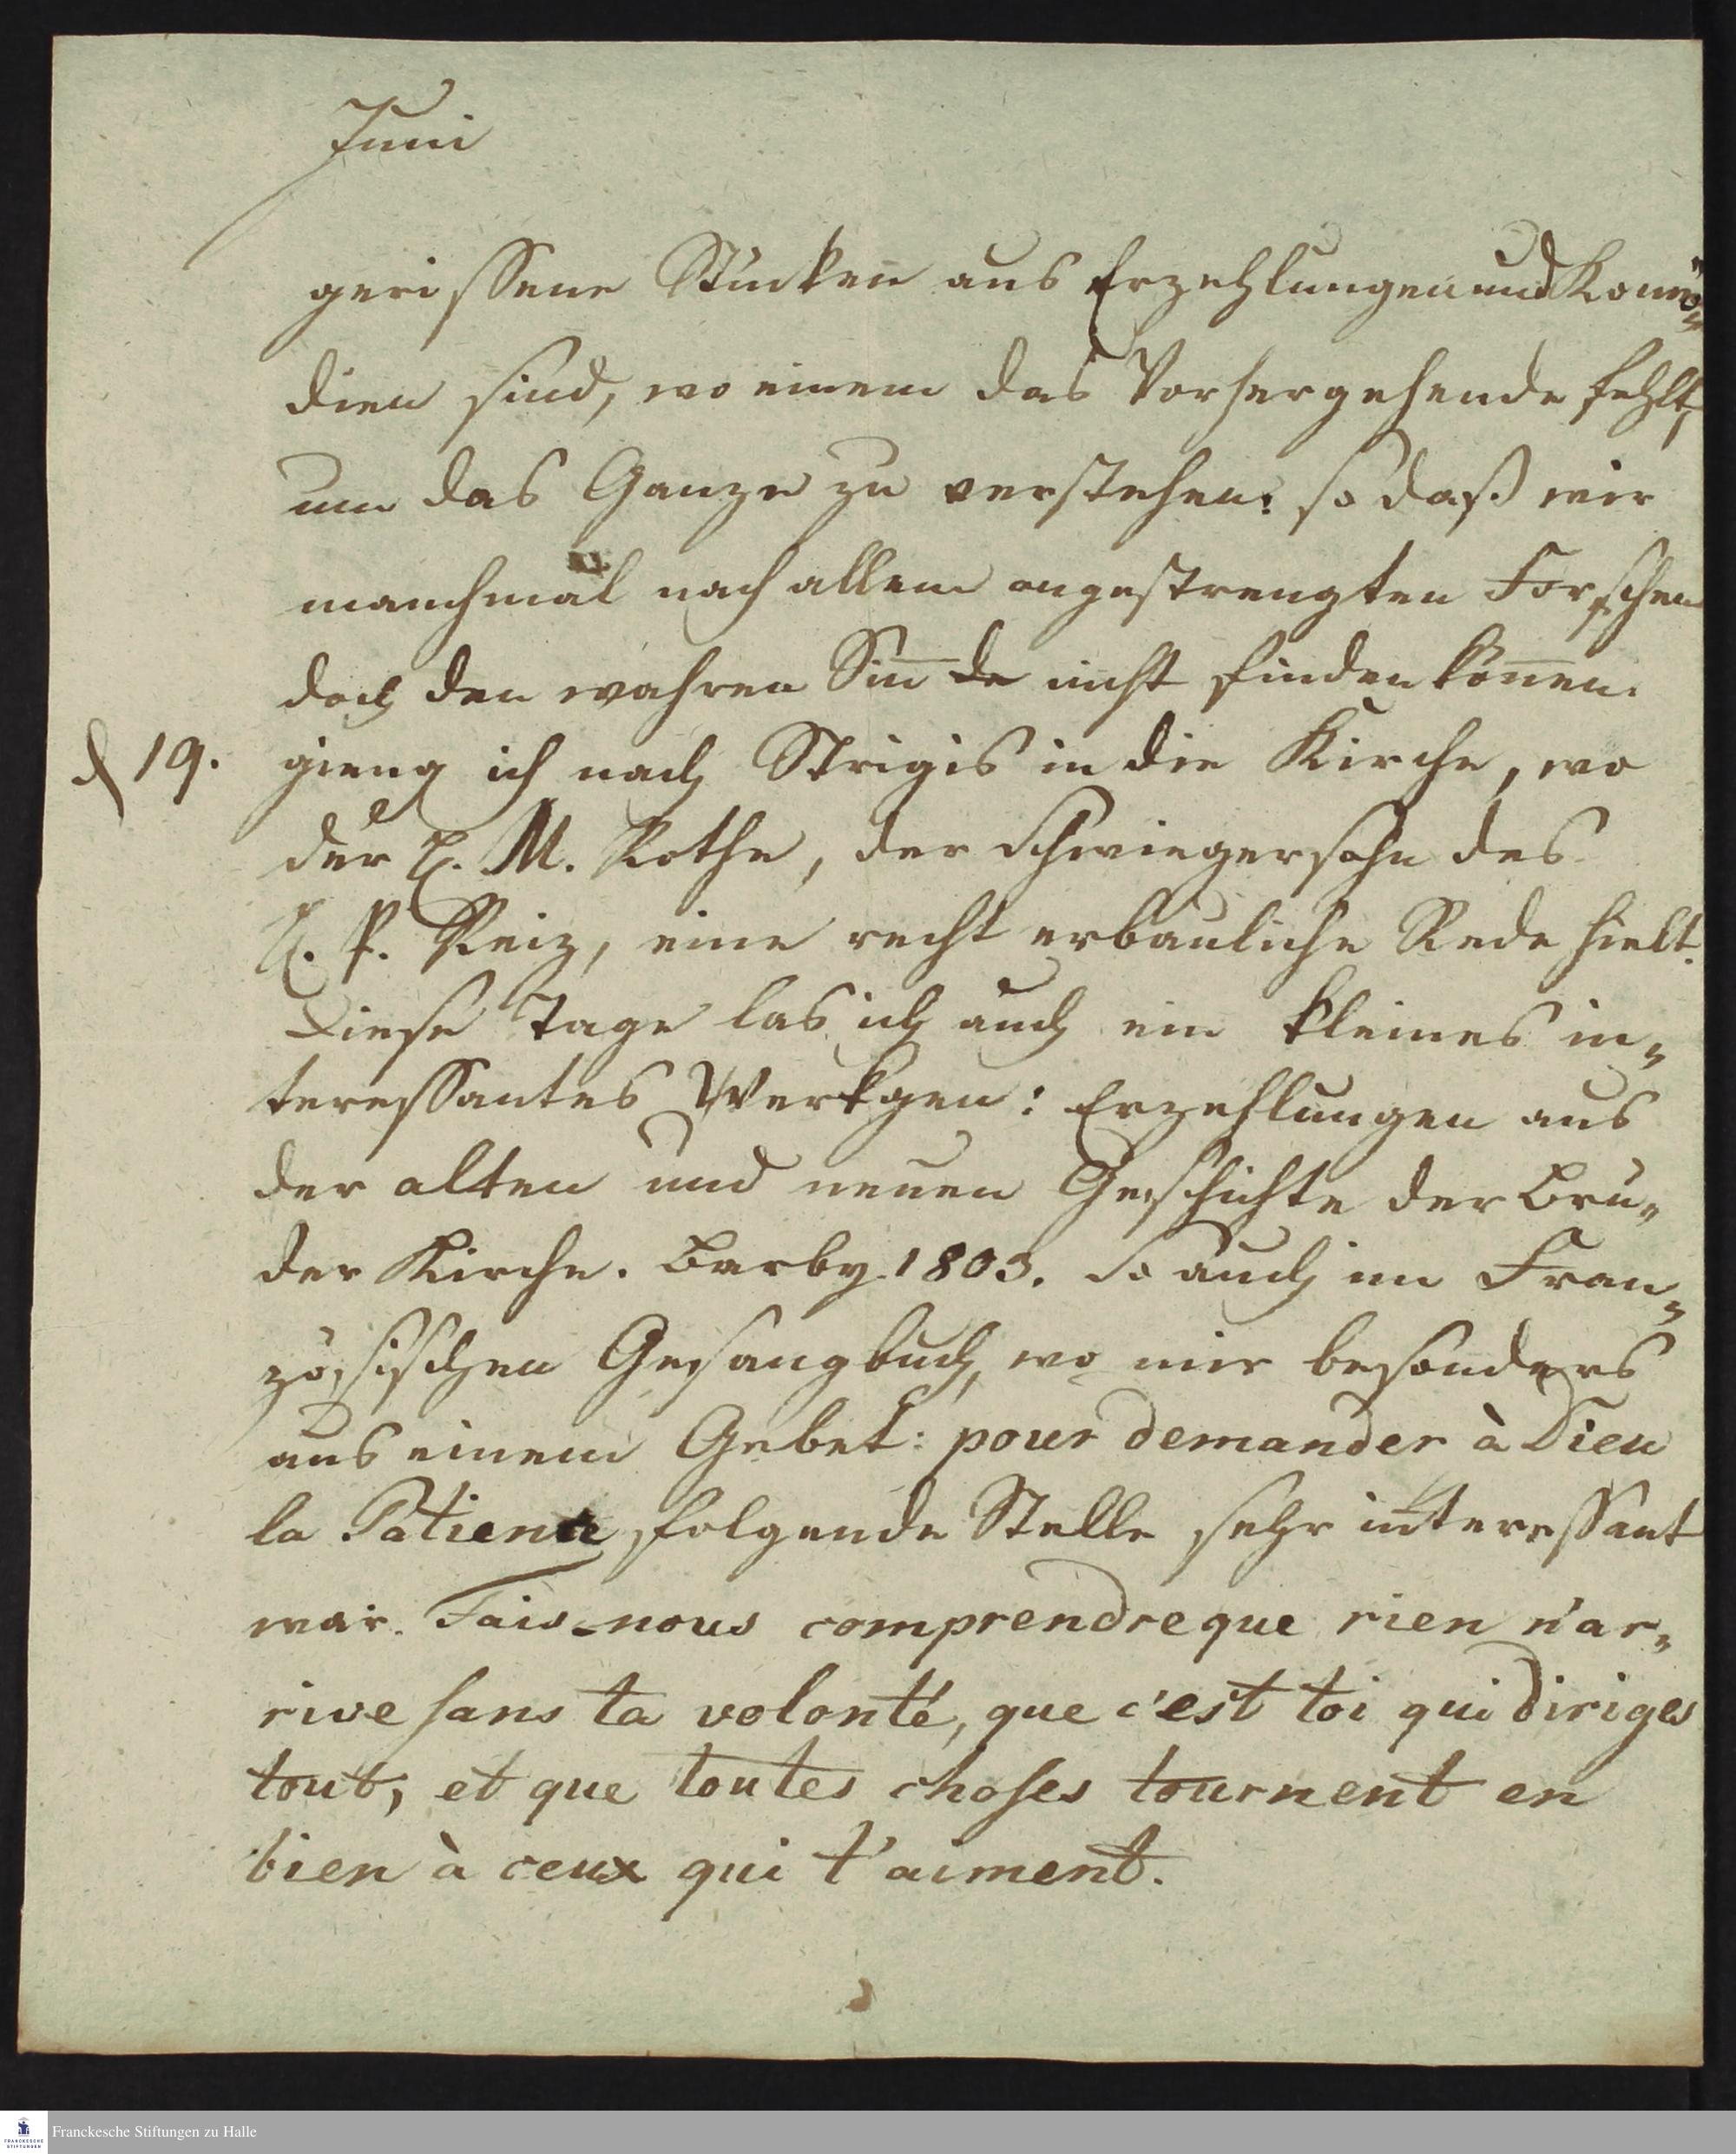 Juni
gerissene Stücken aus Erzehlungen und Komö„
dien sind, wo einem das Vorhergehende fehlt,
um das Ganze zu verstehen: so daß wir
manchmal nach allem angestrengten Forschen
doch den wahren Siñ de nicht finden köñen.
d 19. gieng ich nach Strigis in die Kirche, wo
der H. M. Rothe, der Schwiegersohn des
H. P. Reiz, eine recht erbauliche Rede hielt.
Diese Tage las ich auch ein kleines in„
teressantes Werkgen: Erzehlungen aus
der alten und neuen Geschichte der Brü„
der Kirche. Barby 1803. So auch im Fran„
zösischen Gesangbuch, wo mir besonders
aus einem Gebet: pour demander à Dieu
la Patience folgende Stelle sehr interessant
war. Fais-nous comprendre que rien n'ar„
rive sans ta volonté, que c'est toi qui diriges
tout, et que toutes choses tournent en
bien à ceux qui t'aiment.
Franckesche Stiftungen zu Halle